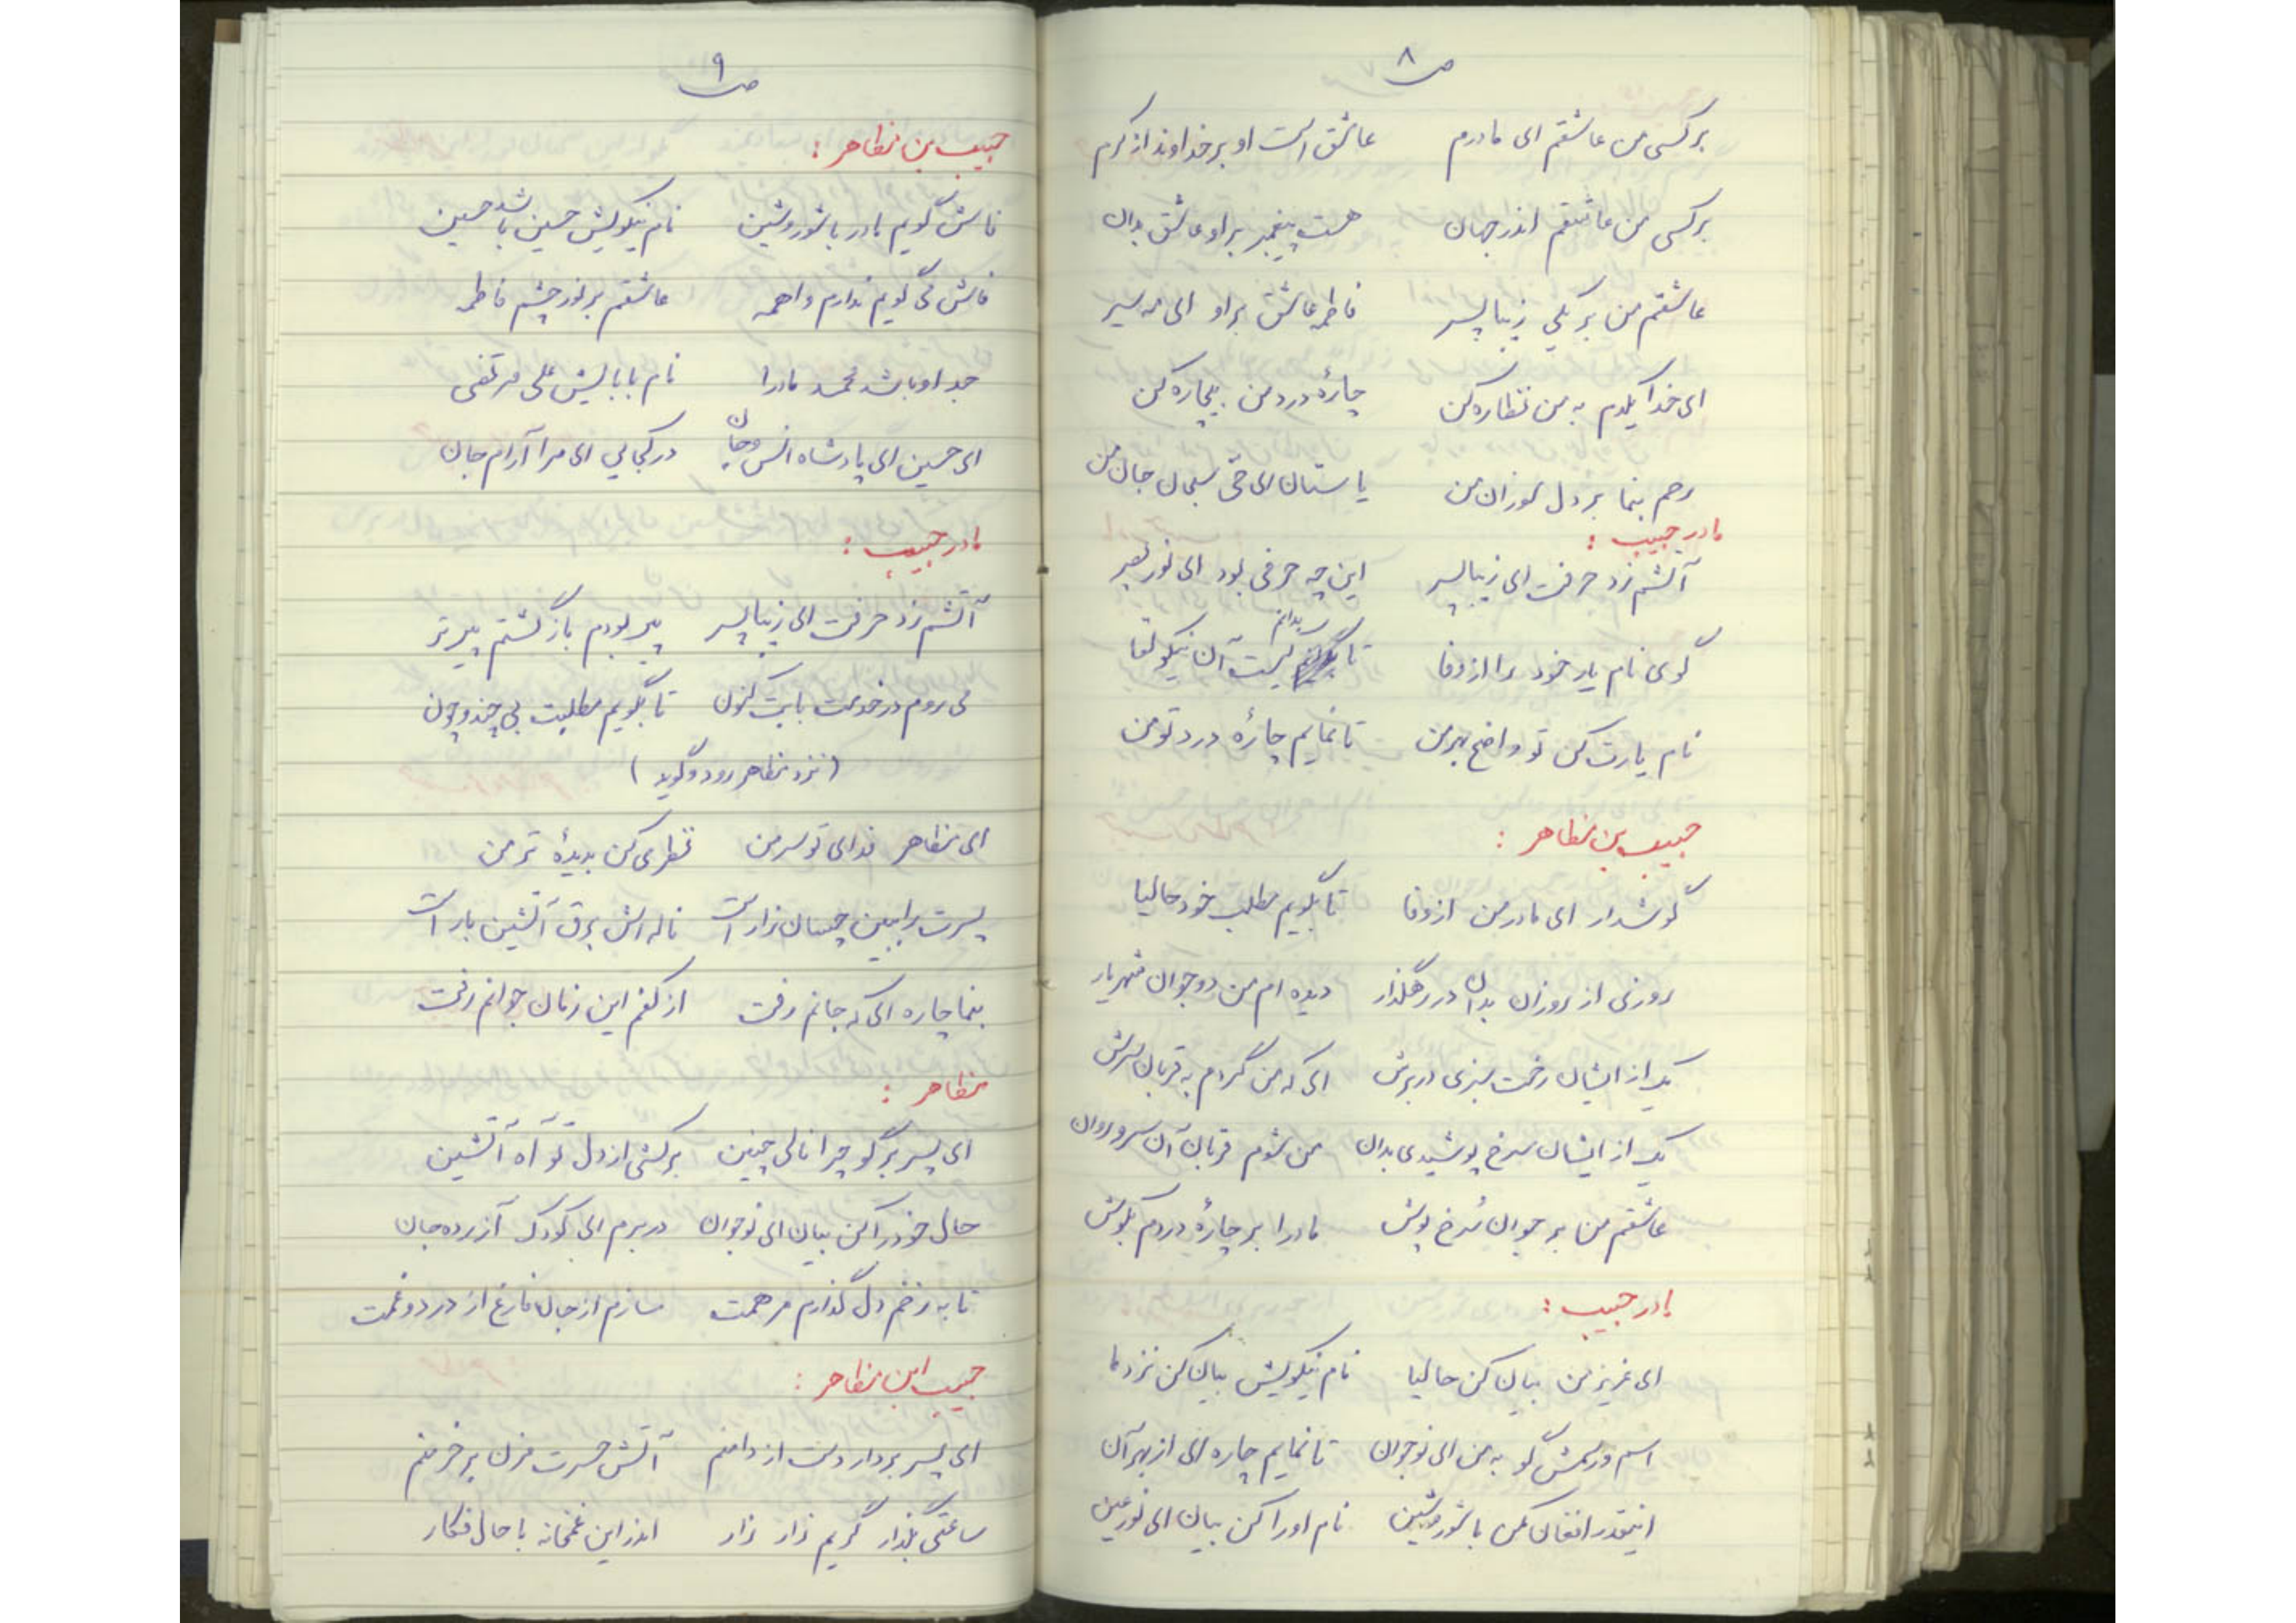 ص ۸
برکسی من عاشقم ای مادرم عاشق است او بر خداوند از کرم
برکسی من عاشقم اندر جهان هست پیغمبر بر او عاشق بدان
عاشقم من بر یکی زیبا پسر فاطمه عاشق بر او ای مه سیر
ای خدا یکدم به من نظاره کن چارهٔ درد من بیچاره کن
رحم بنما بر دل سوزان من یا ستان ای حی سبحان جان من
مادر حبیب :
آتشم زد حرفت ای زیبا پسر این چه حرفی بود ای نور بصر
گوی نام یار خود را از وفا تا بدانم کیست آن نیکو لقا
نام یارت کن تو واضح بهر من تا نمایم چارهٔ درد تو من
حبیب بن مظاهر :
گوشدار ای مادر من از وفا تا بگویم مطلب خود حالیا
روزی از روزان بدان در رهگذار دیده ام من دو جوان شهریار
یک از ایشان رخت سبزی در برش ای که من گردم به قربان سرش
یک از ایشان سرخ پوشیدی بدان من شوم قربان آن سرو روان
عاشقم من بر جوان سُرخ پوش مادرا بر چارهٔ دردم بکوش
مادر حبیب :
ای عزیز من بیان کن حالیا نام نیکویش بیان کن نزد ما
اسم و رسمش گو به من ای نوجوان تا نمایم چاره ای از بهر آن
اینقدر افغان مکن با شور و شین نام او را کن بیان ای نور عین
ص ۹
حبیب بن مظاهر :
فاش گویم مادر با شور و شین نام نیکویش حسین باشد حسین
فاش می گویم ندارم واهمه عاشقم بر نور چشم فاطمه
جد او باشد محمد مادرا نام بابایش علی مرتضی
ای حسین ای پادشاه انس و جان در کجایی ای مرا آرام جان
مادر حبیب :
آتشم زد حرفت ای زیبا پسر پیر بودم باز گشتم پیرتر
می روم در خدمت بابت کنون تا بگویم مطلبت بی چند و چون
(نزد مظاهر رود و گوید)
ای مظاهر فدای تو سر من نظری کن بدیدهٔ تر من
پسرت را ببین چسان زار است ناله اش برق آتشین بار است
بنما چاره ای که جانم رفت از کفم این زمان جوانم رفت
مظاهر :
ای پسر برگو چرا نالی چنین برکشی از دل تو آه آتشین
حال خود را کن بیان ای نوجوان در برم ای کودک آزرده جان
تا به زخم دل گذارم مرهمت سازم از جان فارغ از درد و غمت
حبیب ابن مظاهر :
ای پسر بردار دست از دامنم آتش حسرت مزن بر خرمنم
ساعتی بگذار گریم زار زار اندر این غمخانه با حال فکار